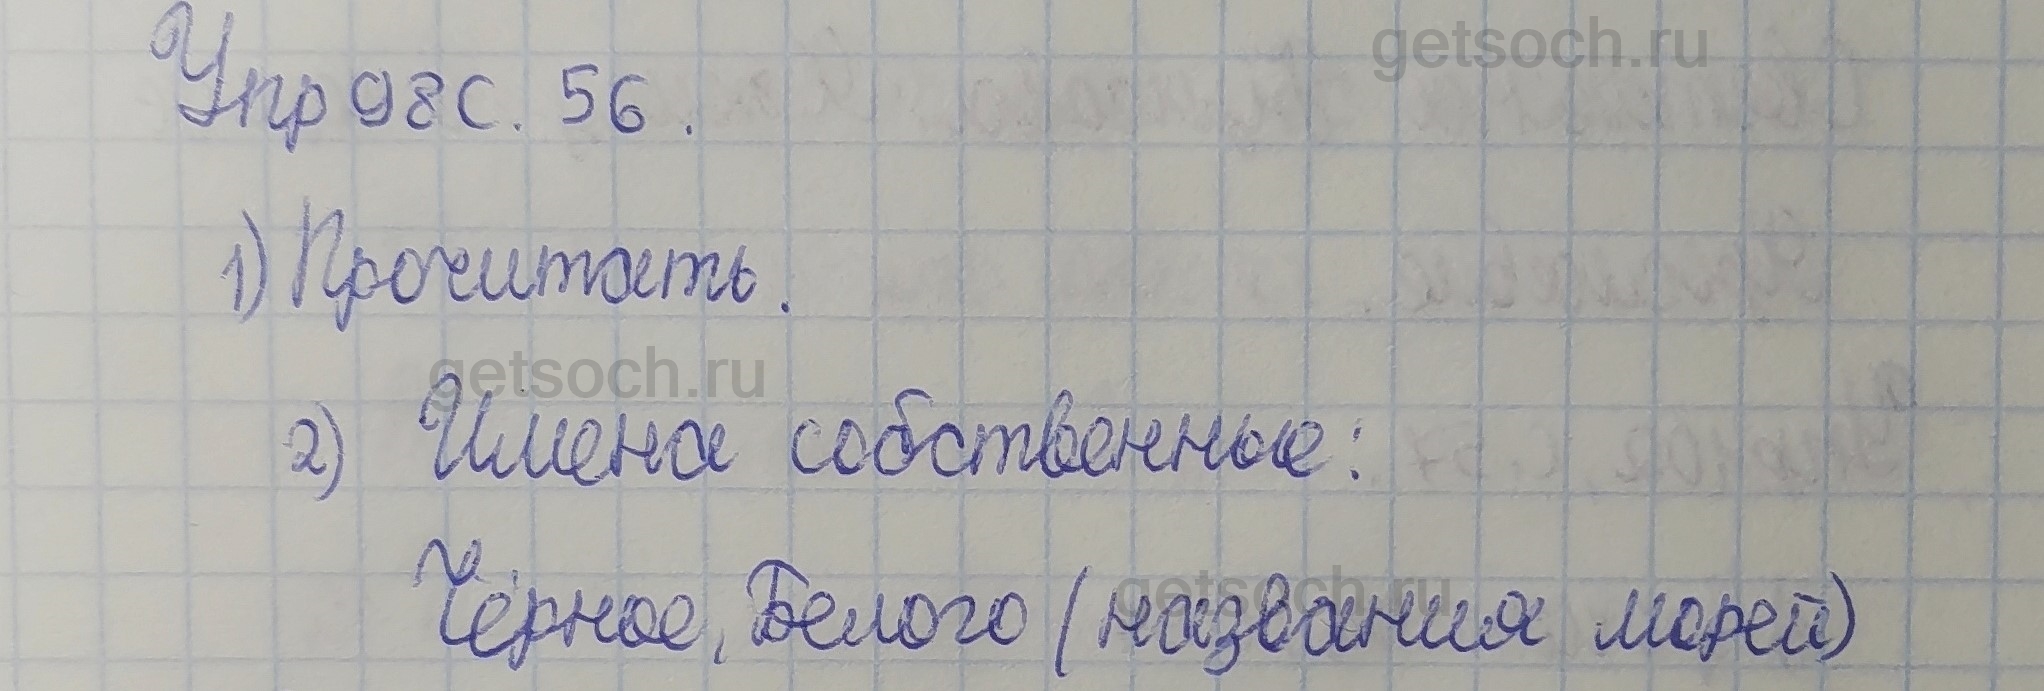 getsoch.ru
Упр 98 с. 56.
1) Прочитать.
getsoch.ru
2) Имена собственные:
getsoch.ru
Чёрное, Белого (названия морей)